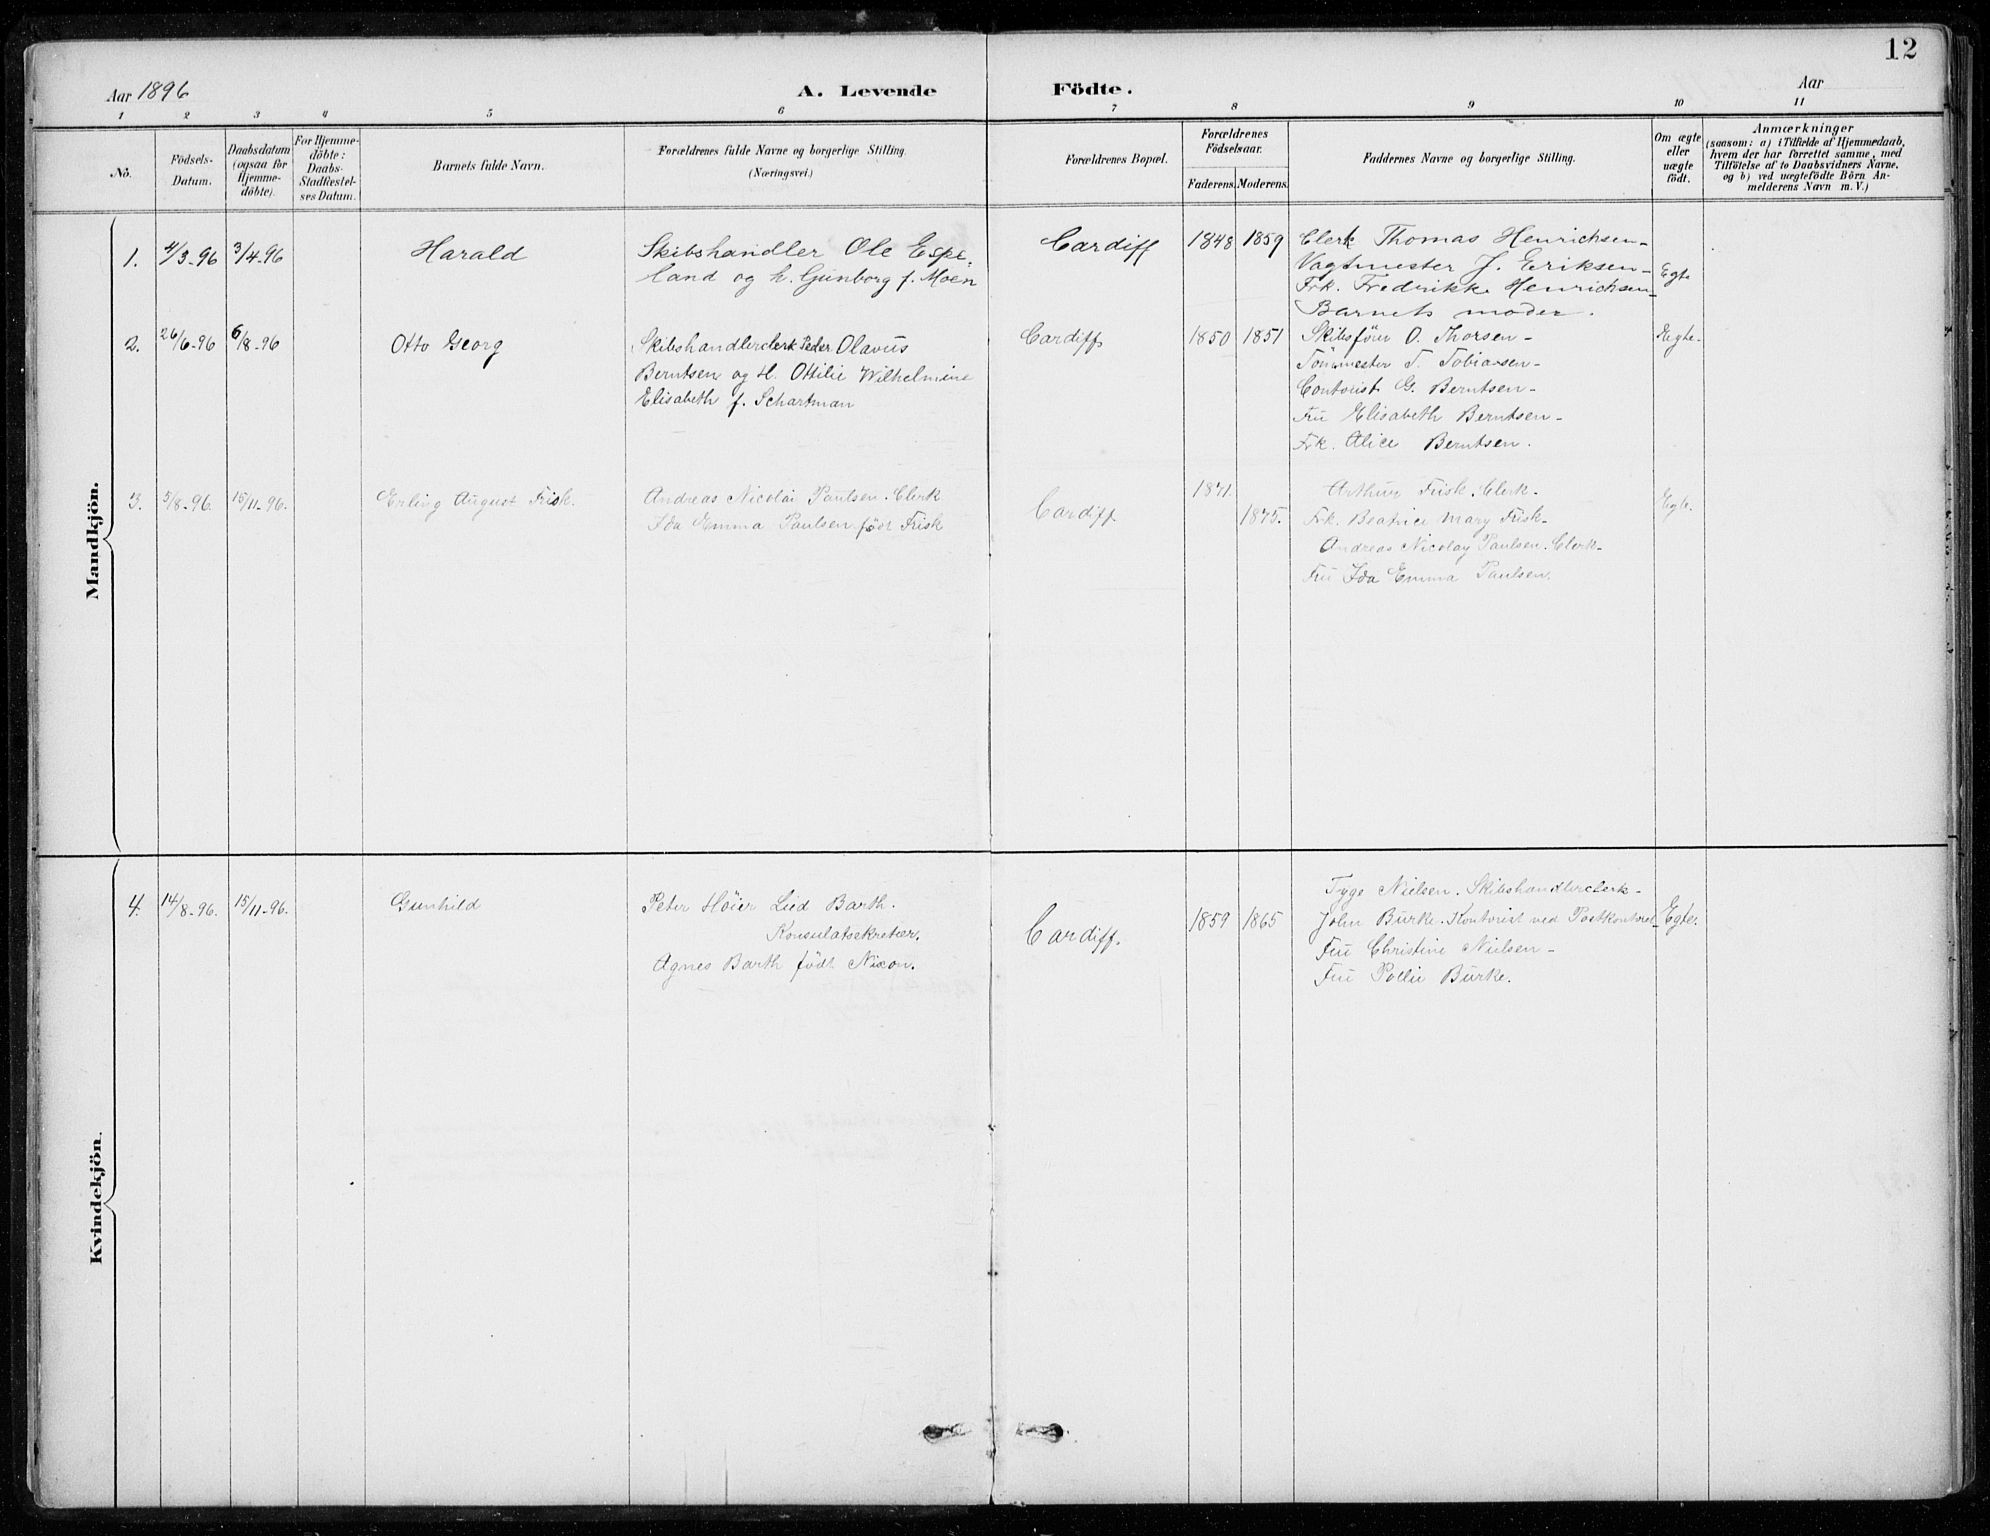 12
Aar 1896
A. Levende Födte.
Aar
1 2 3 4 5 6 7 8 9 10 11
No.
Födsels-Datum.
Daabsdatum (ogsaa for Hjemme-döbte).
For Hjemme-döbte: Daabs-Stadfæstel-ses Datum.
Barnets fulde Navn.
Forældrenes fulde Navne og borgerlige Stilling.
(Næringsvei.)
Forældrenes Bopæl.
Forældrenes Födselsaar.
Faderens. Moderens.
Faddernes Navne og borgerlige Stilling.
Om ægte eller uægte födt.
Anmærkninger
(saasom: a) i Tilfælde af Hjemmedaab,
hvem der har forrettet samme, med
Tilföielse af to Daabsvidners Navne.
og b) ved uægtefödte Börn An-
melderens Navn m. V.)
Mandkjön.
1. 4/3-96 3/4-96 Harald
Skibshandler Ole Espe-
land og h. Gunborg f. Moen
Cardiff 1848 1859
Clerk Thomas Henrichsen-
Vagtmester J. Eriksen-
Frk. Fredrikke Henrichsen-
Barnets moder.
Egte
2. 26/6-96 6/8-96 Otto Georg
Skibshandlerclerk Peder Olavus
Berntsen og H. Ottilie Wilhelmine
Elisabeth f. Schartman
Cardiff 1850 1851
Skibsförer O. Thorsen-
Tömmester T. Tobiasen-
Contorist G. Berntsen-
Fru Elisabeth Berntsen-
Frk. Alice Berntsen.
Egte-
3. 5/8-96. 15/11-96. Erling August Frisk.
Andreas Nicolai Paulsen. Clerk
Ida Emma Paulsen født Frisk
Cardiff 1871. 1875.
Arthur Frisk. Clerk-
Frk. Beatrice Mary Frisk-
Andreas Nicolay Paulsen. Clerk-
Fru Ida Emma Paulsen.
Egte.
Kvindekjön.
4. 14/8-96. 15/11-96. Gunhild
Peter Höier Lied Barth.
Konsulatsekretær.
Agnes Barth födt Nixon.
Cardiff. 1859 1865
Tyge Nielsen. Skibshandlerclerk-
John Burke. Kontorist ved Postkontoret-
Fru Christine Nielsen-
Fru Pollie Burke.
Egte.